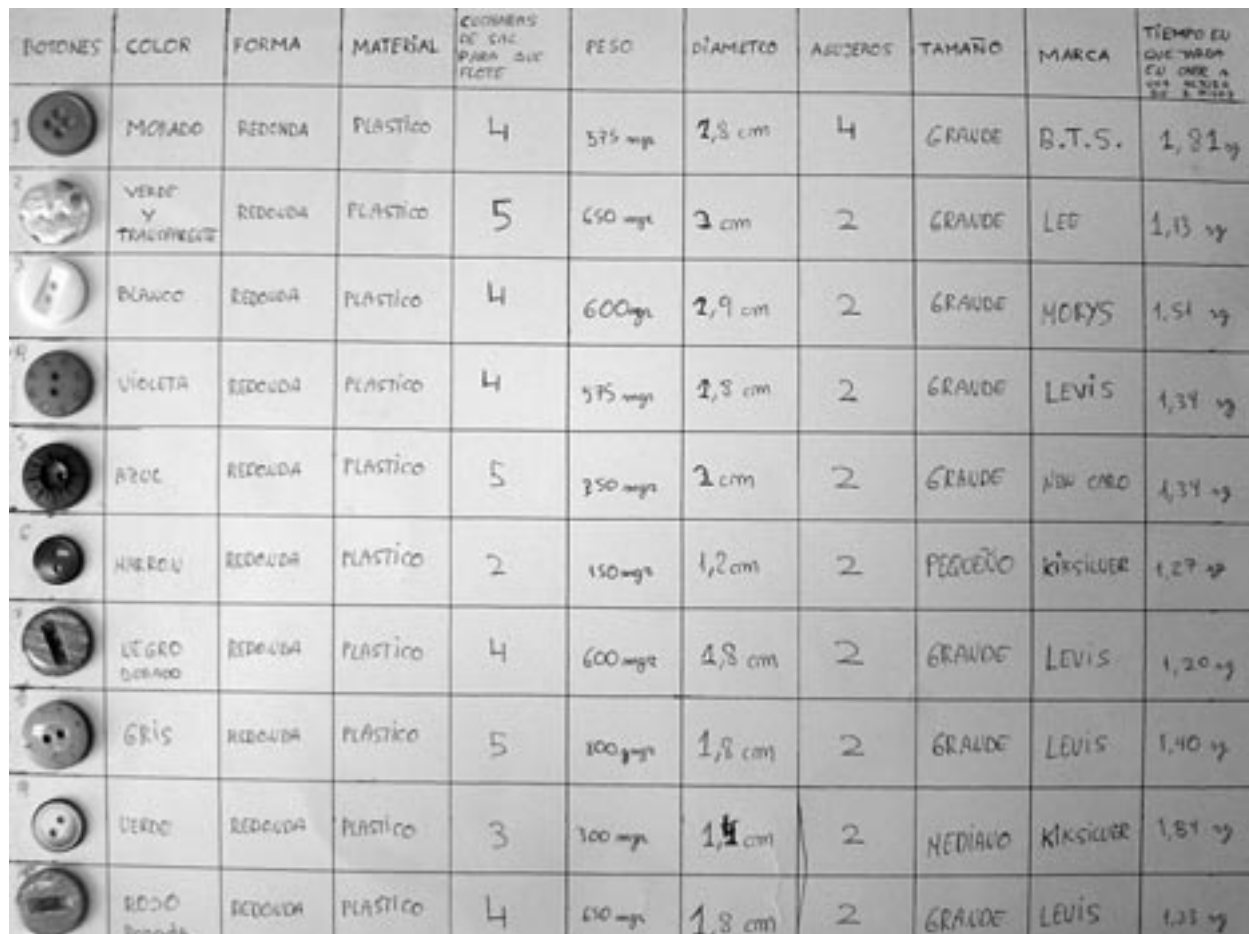 BOTONES COLOR FORMA MATERIAL CUCHARAS DE SAL PARA QUE FLOTE PESO DIAMETRO AGUJEROS TAMAÑO MARCA TIEMPO EN QUE TARDA EN CAER A UNA ALTURA DE
1 MORADO REDONDA PLASTICO 4 575 mgr 1,8 cm 4 GRANDE B.T.S. 1,81 sg
2 VERDE Y TRANSPARENTE REDONDA PLASTICO 5 650 mgr 2 cm 2 GRANDE LEE 1,13 sg
3 BLANCO REDONDA PLASTICO 4 600 mgr 1,9 cm 2 GRANDE MORYS 1,51 sg
4 VIOLETA REDONDA PLASTICO 4 575 mgr 1,8 cm 2 GRANDE LEVIS 1,34 sg
5 AZUL REDONDA PLASTICO 5 mgr 2 cm 2 GRANDE NEW CARO 1,34 sg
6 MARRON REDONDA PLASTICO 2 150 mgr 1,2 cm 2 PEQUEÑO KIKSILVER 1,27 sg
7 NEGRO DORADO REDONDA PLASTICO 4 600 mgr 1,8 cm 2 GRANDE LEVIS 1,20 sg
GRIS REDONDA PLASTICO 5 1,8 cm 2 GRANDE LEVIS 1,40 sg
9 VERDE REDONDA PLASTICO 3 300 mgr cm 2 MEDIANO KIKSILVER sg
ROJO REDONDA PLASTICO 4 650 mgr 1,8 cm 2 GRANDE LEVIS sg